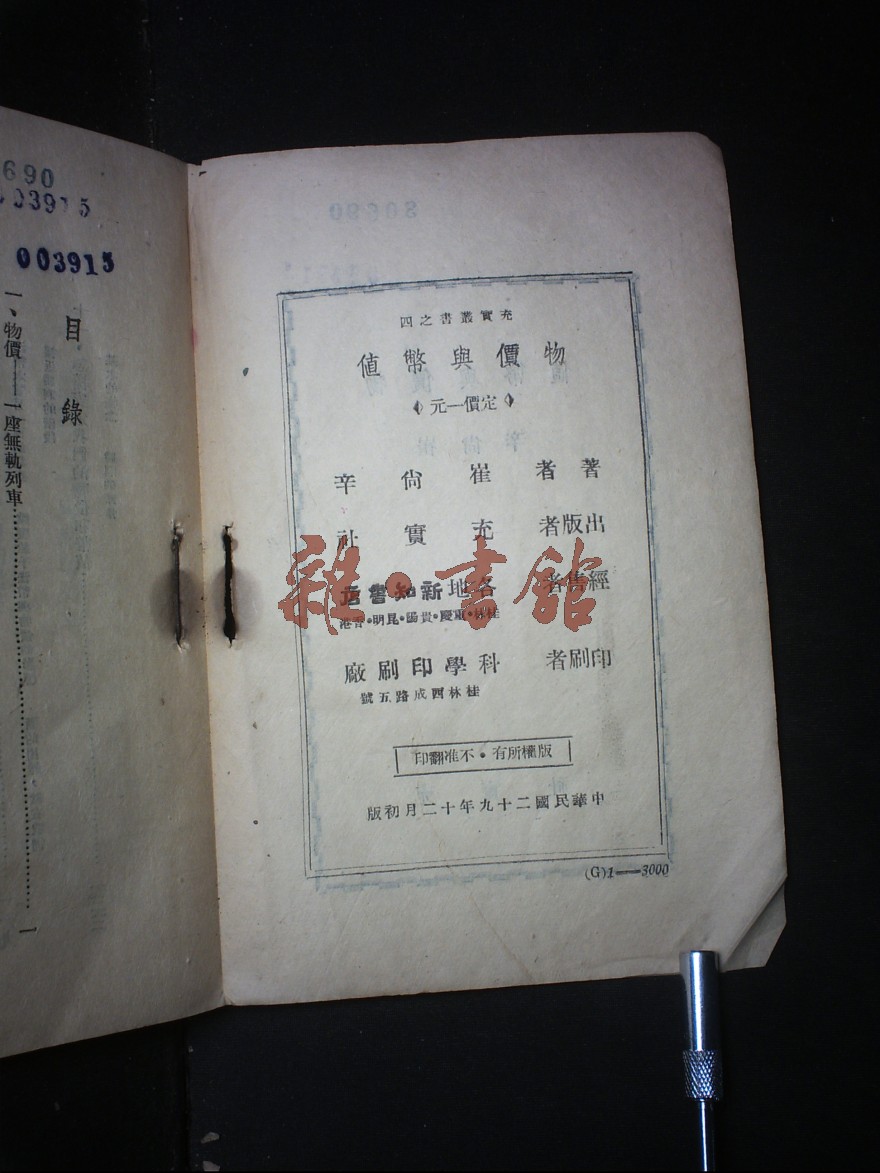 充實叢書之四
物價與幣值
定價一元
著者 崔尙辛
出版者 充實社
經售者 各地新知書店
桂林・重慶・貴陽・昆明・香港
印刷者 科學印刷廠
桂林西成路五號
版權所有・不准翻印
中華民國二十九年十二月初版
(G)1—3000
雜・書館
690
003915
003915
目錄
一、物價——一座無軌列車……一